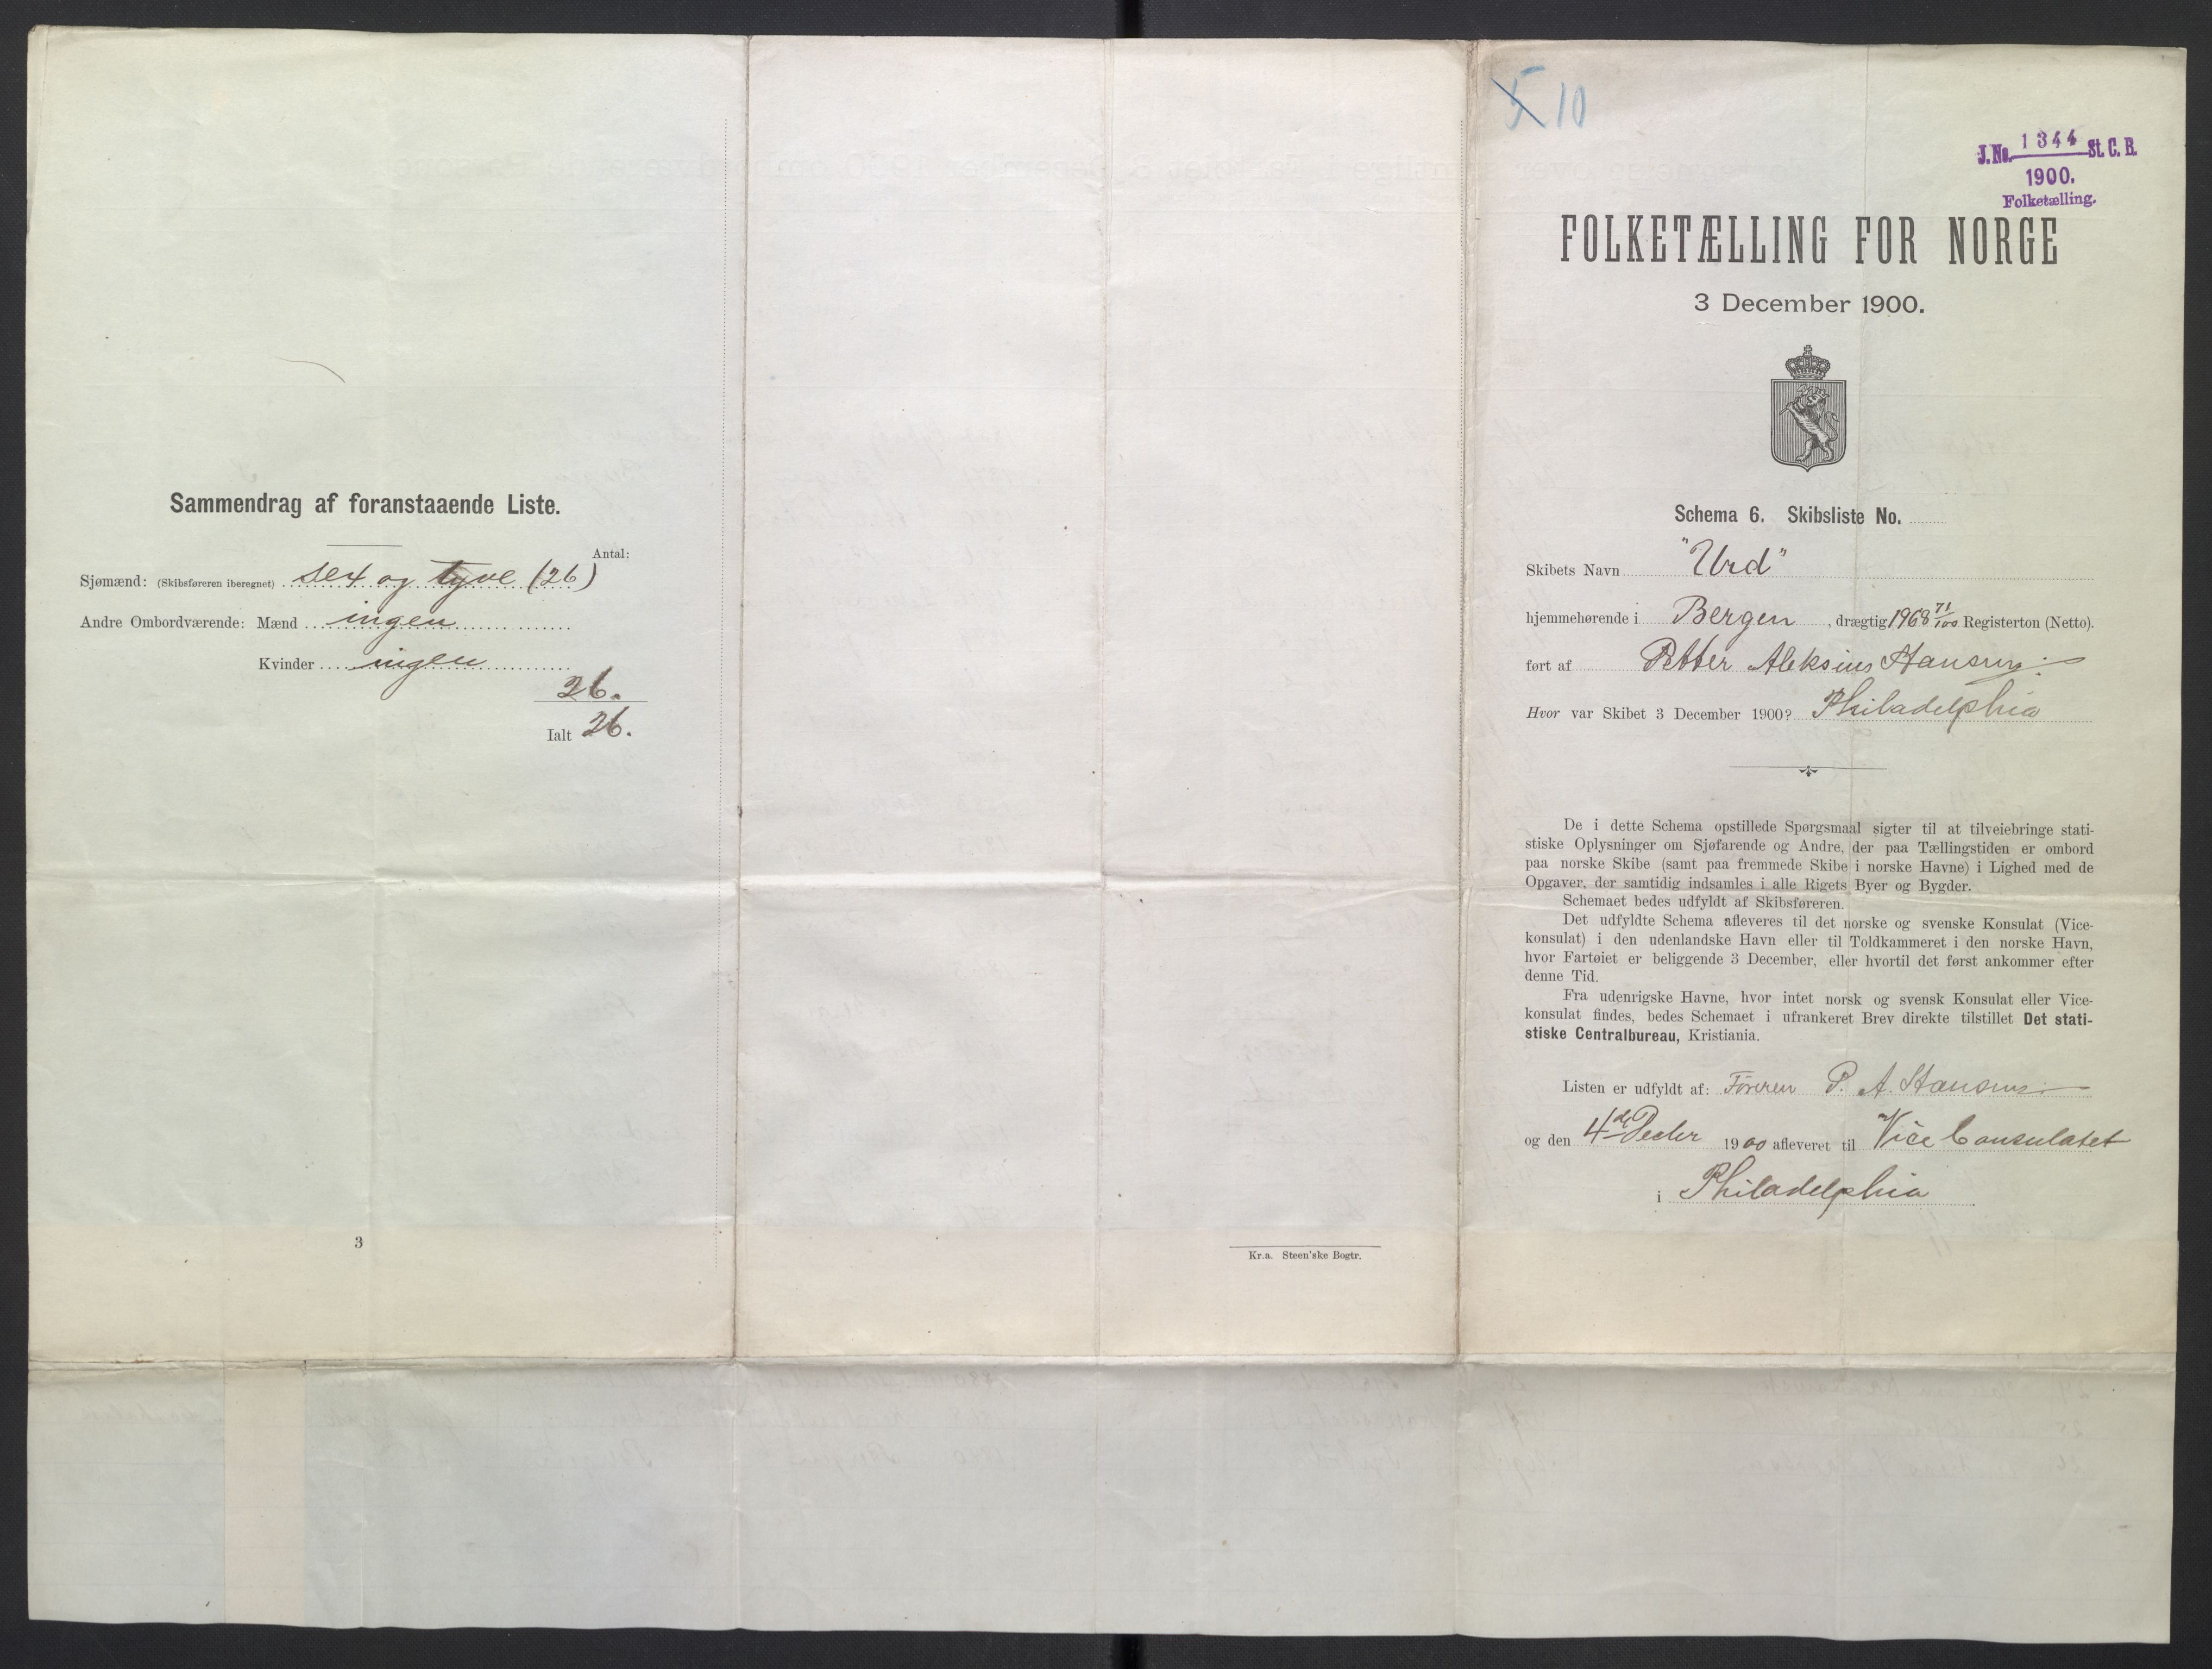 Sammendrag af foranstaaende Liste.
Antal:
Sjømænd: (Skibsføreren iberegnet) sex og tyve (26)
Andre Ombordværende: Mænd ingen
Kvinder ingen
26.
Ialt 26.
3
Kr.a. Steen'ske Bogtr.
5 10
J.No. 1344 St. C. B.
1900.
Folketælling.
FOLKETÆLLING FOR NORGE
3 December 1900.
Schema 6. Skibsliste No.
Skibets Navn "Urd"
hjemmehørende i Bergen, drægtig 1968 71/100 Registerton (Netto).
ført af Petter Aleksius Hansen
Hvor var Skibet 3 December 1900? Philadelphia
De i dette Schema opstillede Spørgsmaal sigter til at tilveiebringe stati-
stiske Oplysninger om Sjøfarende og Andre, der paa Tællingstiden er ombord
paa norske Skibe (samt paa fremmede Skibe i norske Havne) i Lighed med de
Opgaver, der samtidig indsamles i alle Rigets Byer og Bygder.
Schemaet bedes udfyldt af Skibsføreren.
Det udfyldte Schema afleveres til det norske og svenske Konsulat (Vice-
konsulat) i den udenlandske Havn eller til Toldkammeret i den norske Havn,
hvor Fartøiet er beliggende 3 December, eller hvortil det først ankommer efter
denne Tid.
Fra udenrigske Havne, hvor intet norsk og svensk Konsulat eller Vice-
konsulat findes, bedes Schemaet i ufrankeret Brev direkte tilstillet Det stati-
stiske Centralbureau, Kristiania.
Listen er udfyldt af: Føreren P. A. Hansen
og den 4de Decbr 1900 afleveret til Vice Consulatet
i Philadelphia